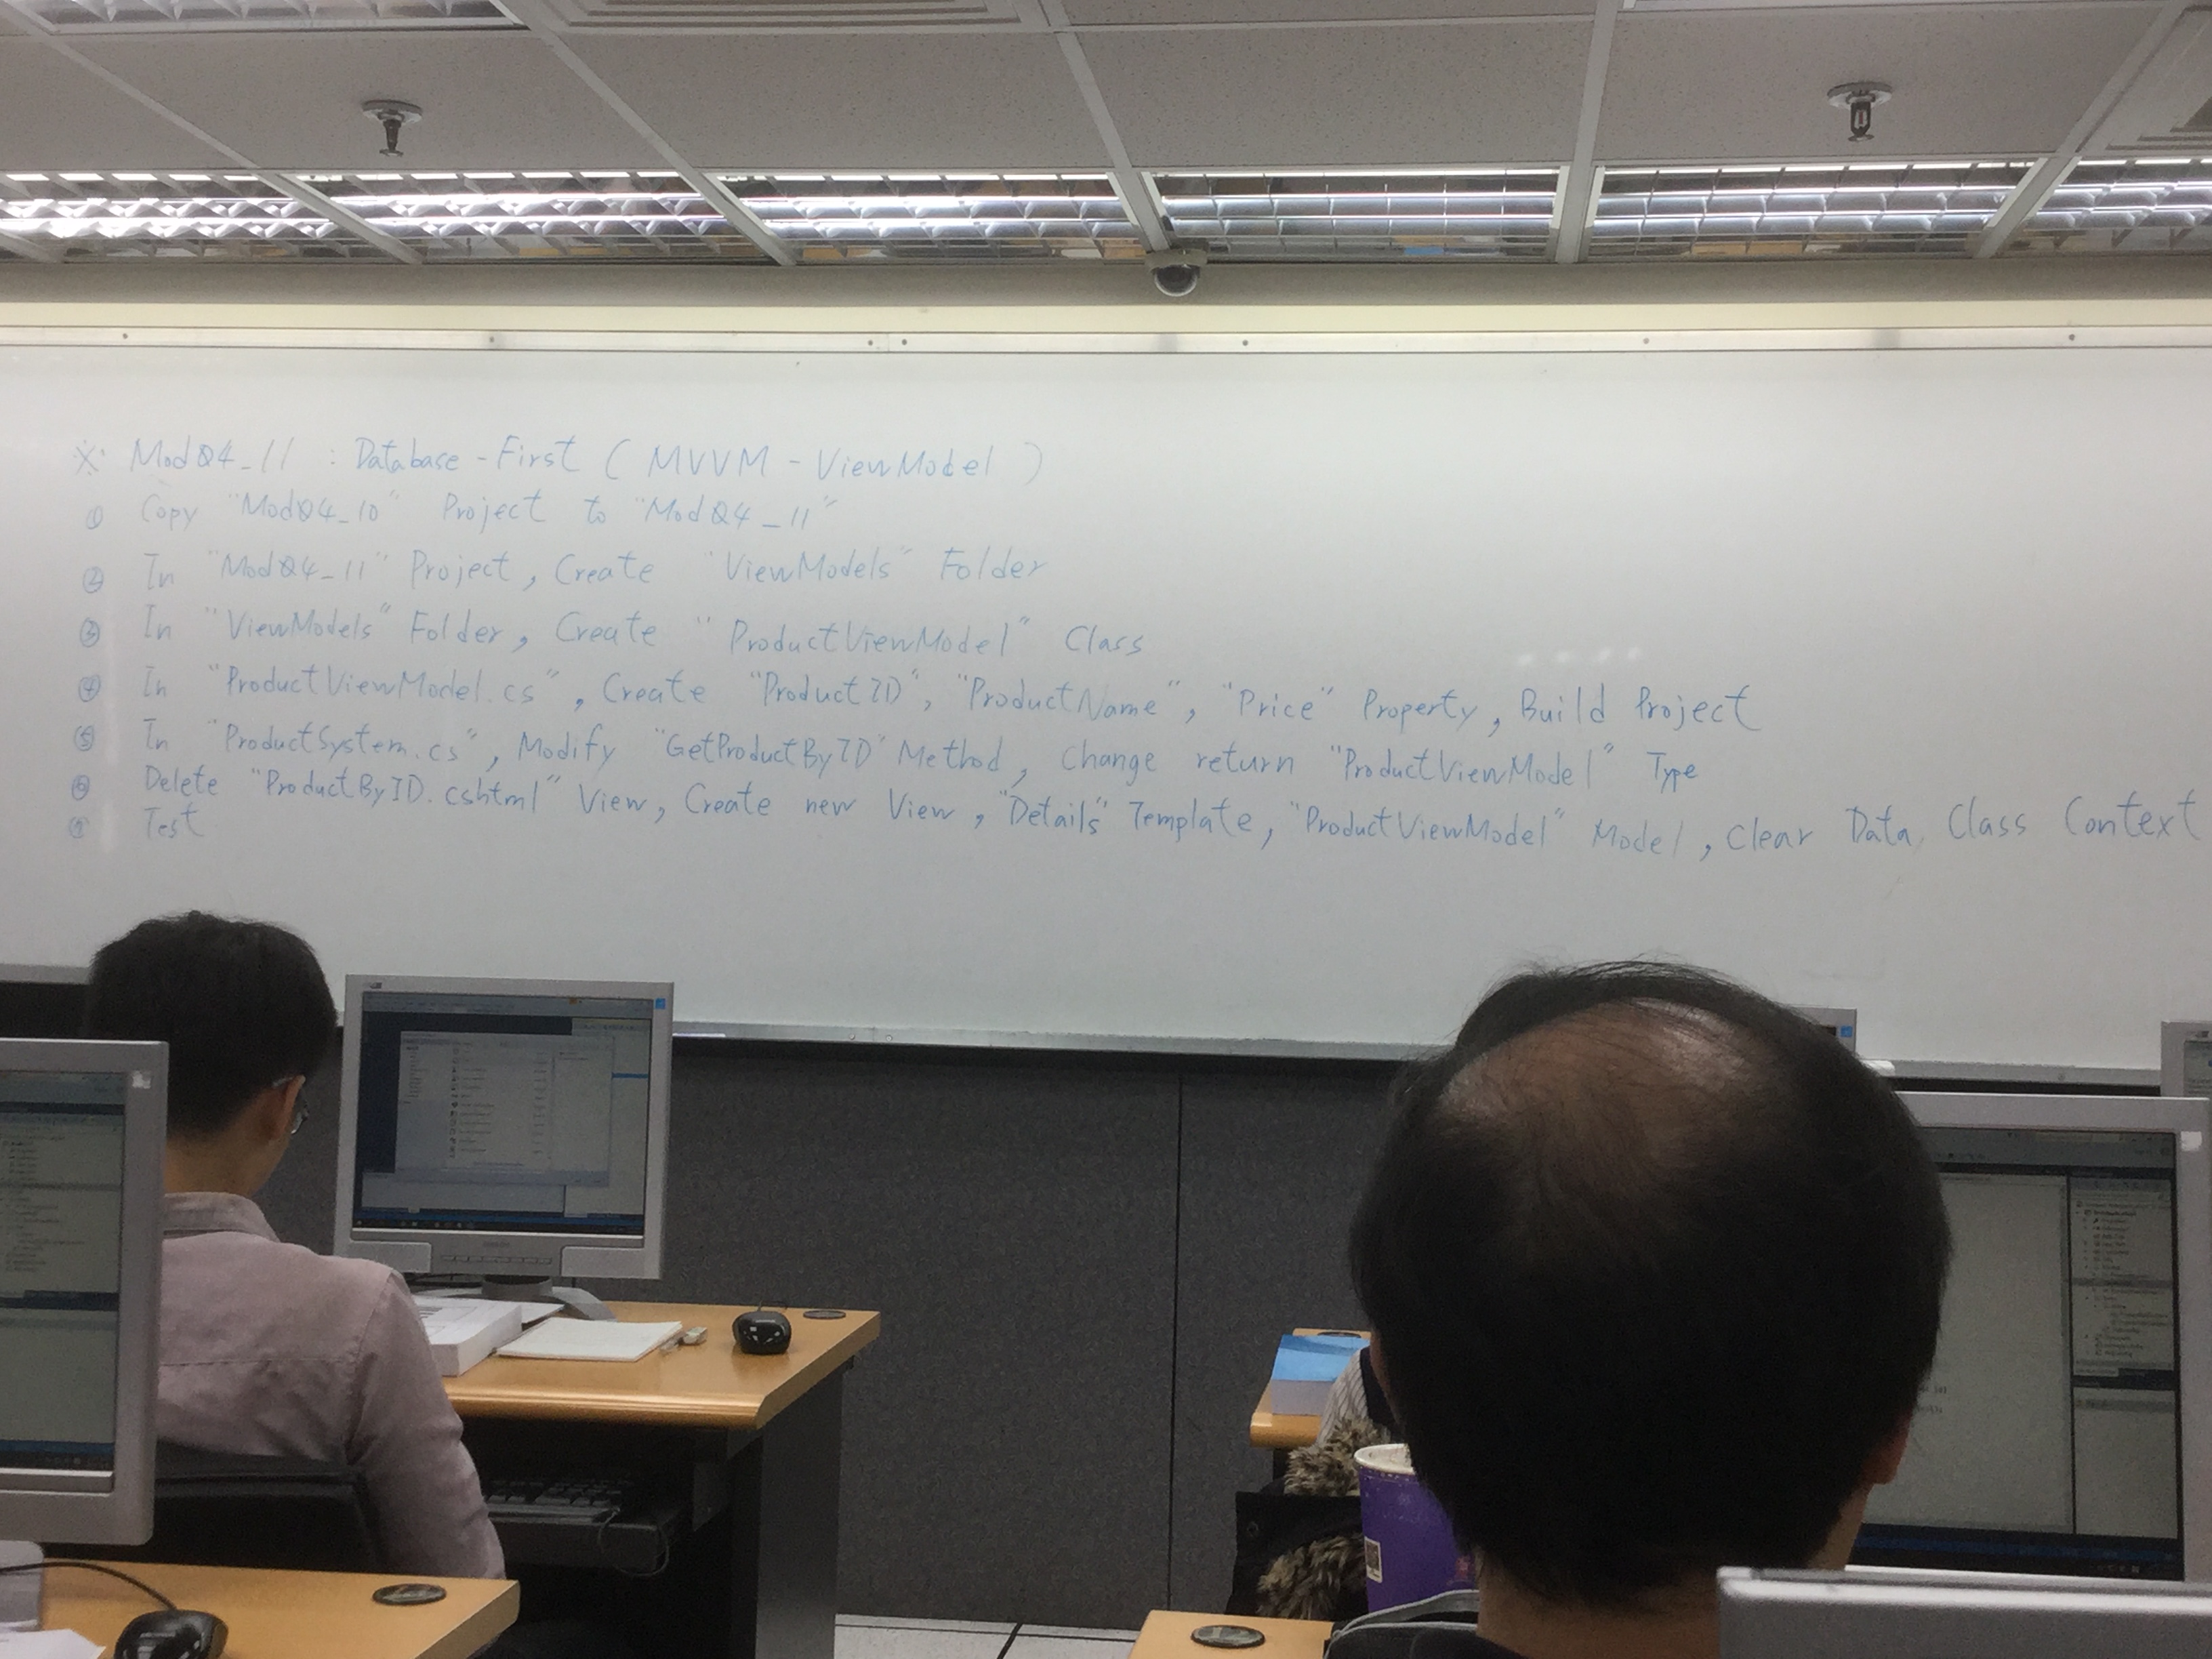 ※ Mod04_11 : Database-First ( MVVM - ViewModel )
① Copy "Mod04_10" Project to "Mod04_11"
② In "Mod04_11" Project, Create "ViewModels" Folder
③ In "ViewModels" Folder, Create "ProductViewModel" Class
④ In "ProductViewModel.cs", Create "ProductID", "ProductName", "Price" Property, Build Project
⑤ In "ProductSystem.cs", Modify "GetProductByID" Method, Change return "ProductViewModel" Type
⑥ Delete "ProductByID.cshtml" View, Create new View, "Details" Template, "ProductViewModel" Model, Clear Data Class Context
⑦ Test